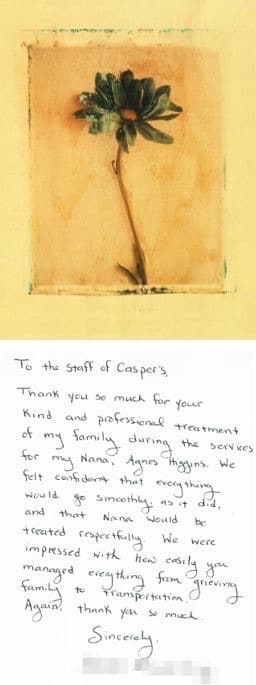 To the staff of Casper's,
Thank you so much for your
kind and professional treatment
of my family during the services
for my Nana, Agnes Higgins. We
felt confident that everything
would go smoothly, as it did,
and that Nana would be
treated respectfully. We were
impressed with how easily you
managed everything from grieving
family to transportation.
Again, thank you so much.
Sincerely,